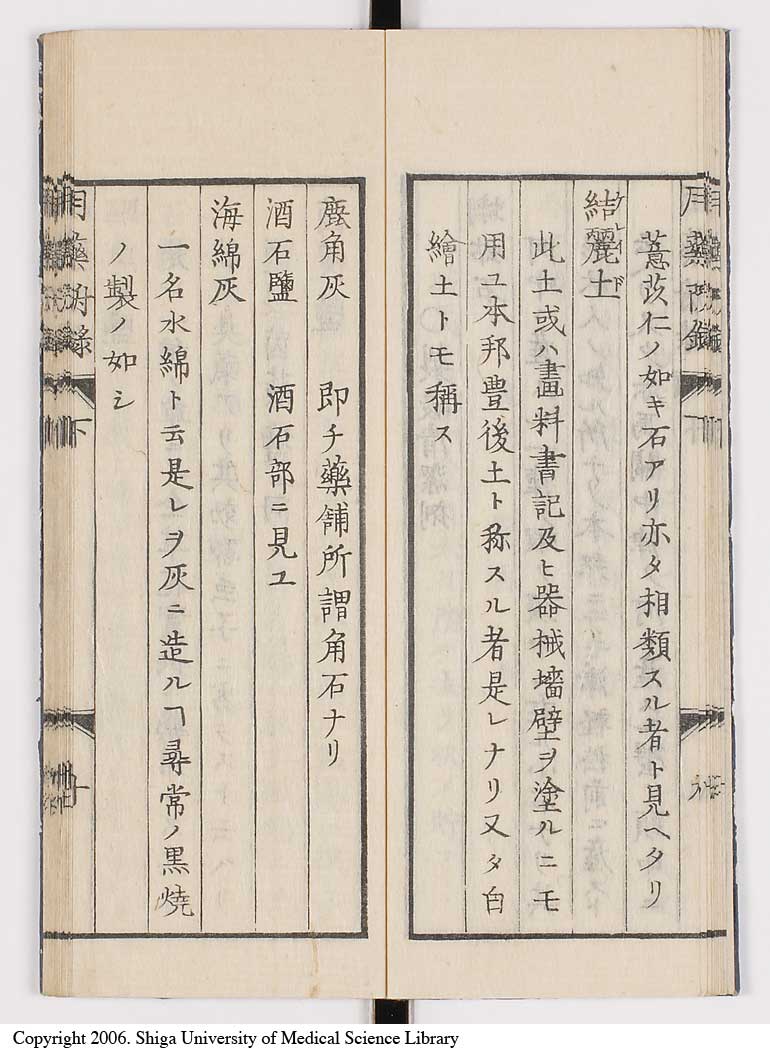 薏苡仁ノ如キ石アリ亦タ相類スル者ト見ヘタリ
結麗土
ケレイド
此土或ハ畫料書記及ヒ器械墻壁ヲ塗ルニモ
用ユ本邦豊後土ト称スル者是レナリ又タ白
繪土トモ稱ス
鹿角灰 即チ藥舗所謂角石ナリ
酒石鹽 酒石部ニ見ユ
海綿灰
一名水綿ト云是レヲ灰ニ造ルヿ尋常ノ黒焼
ノ製ノ如シ
用藥附録 下
Copyright 2006. Shiga University of Medical Science Library